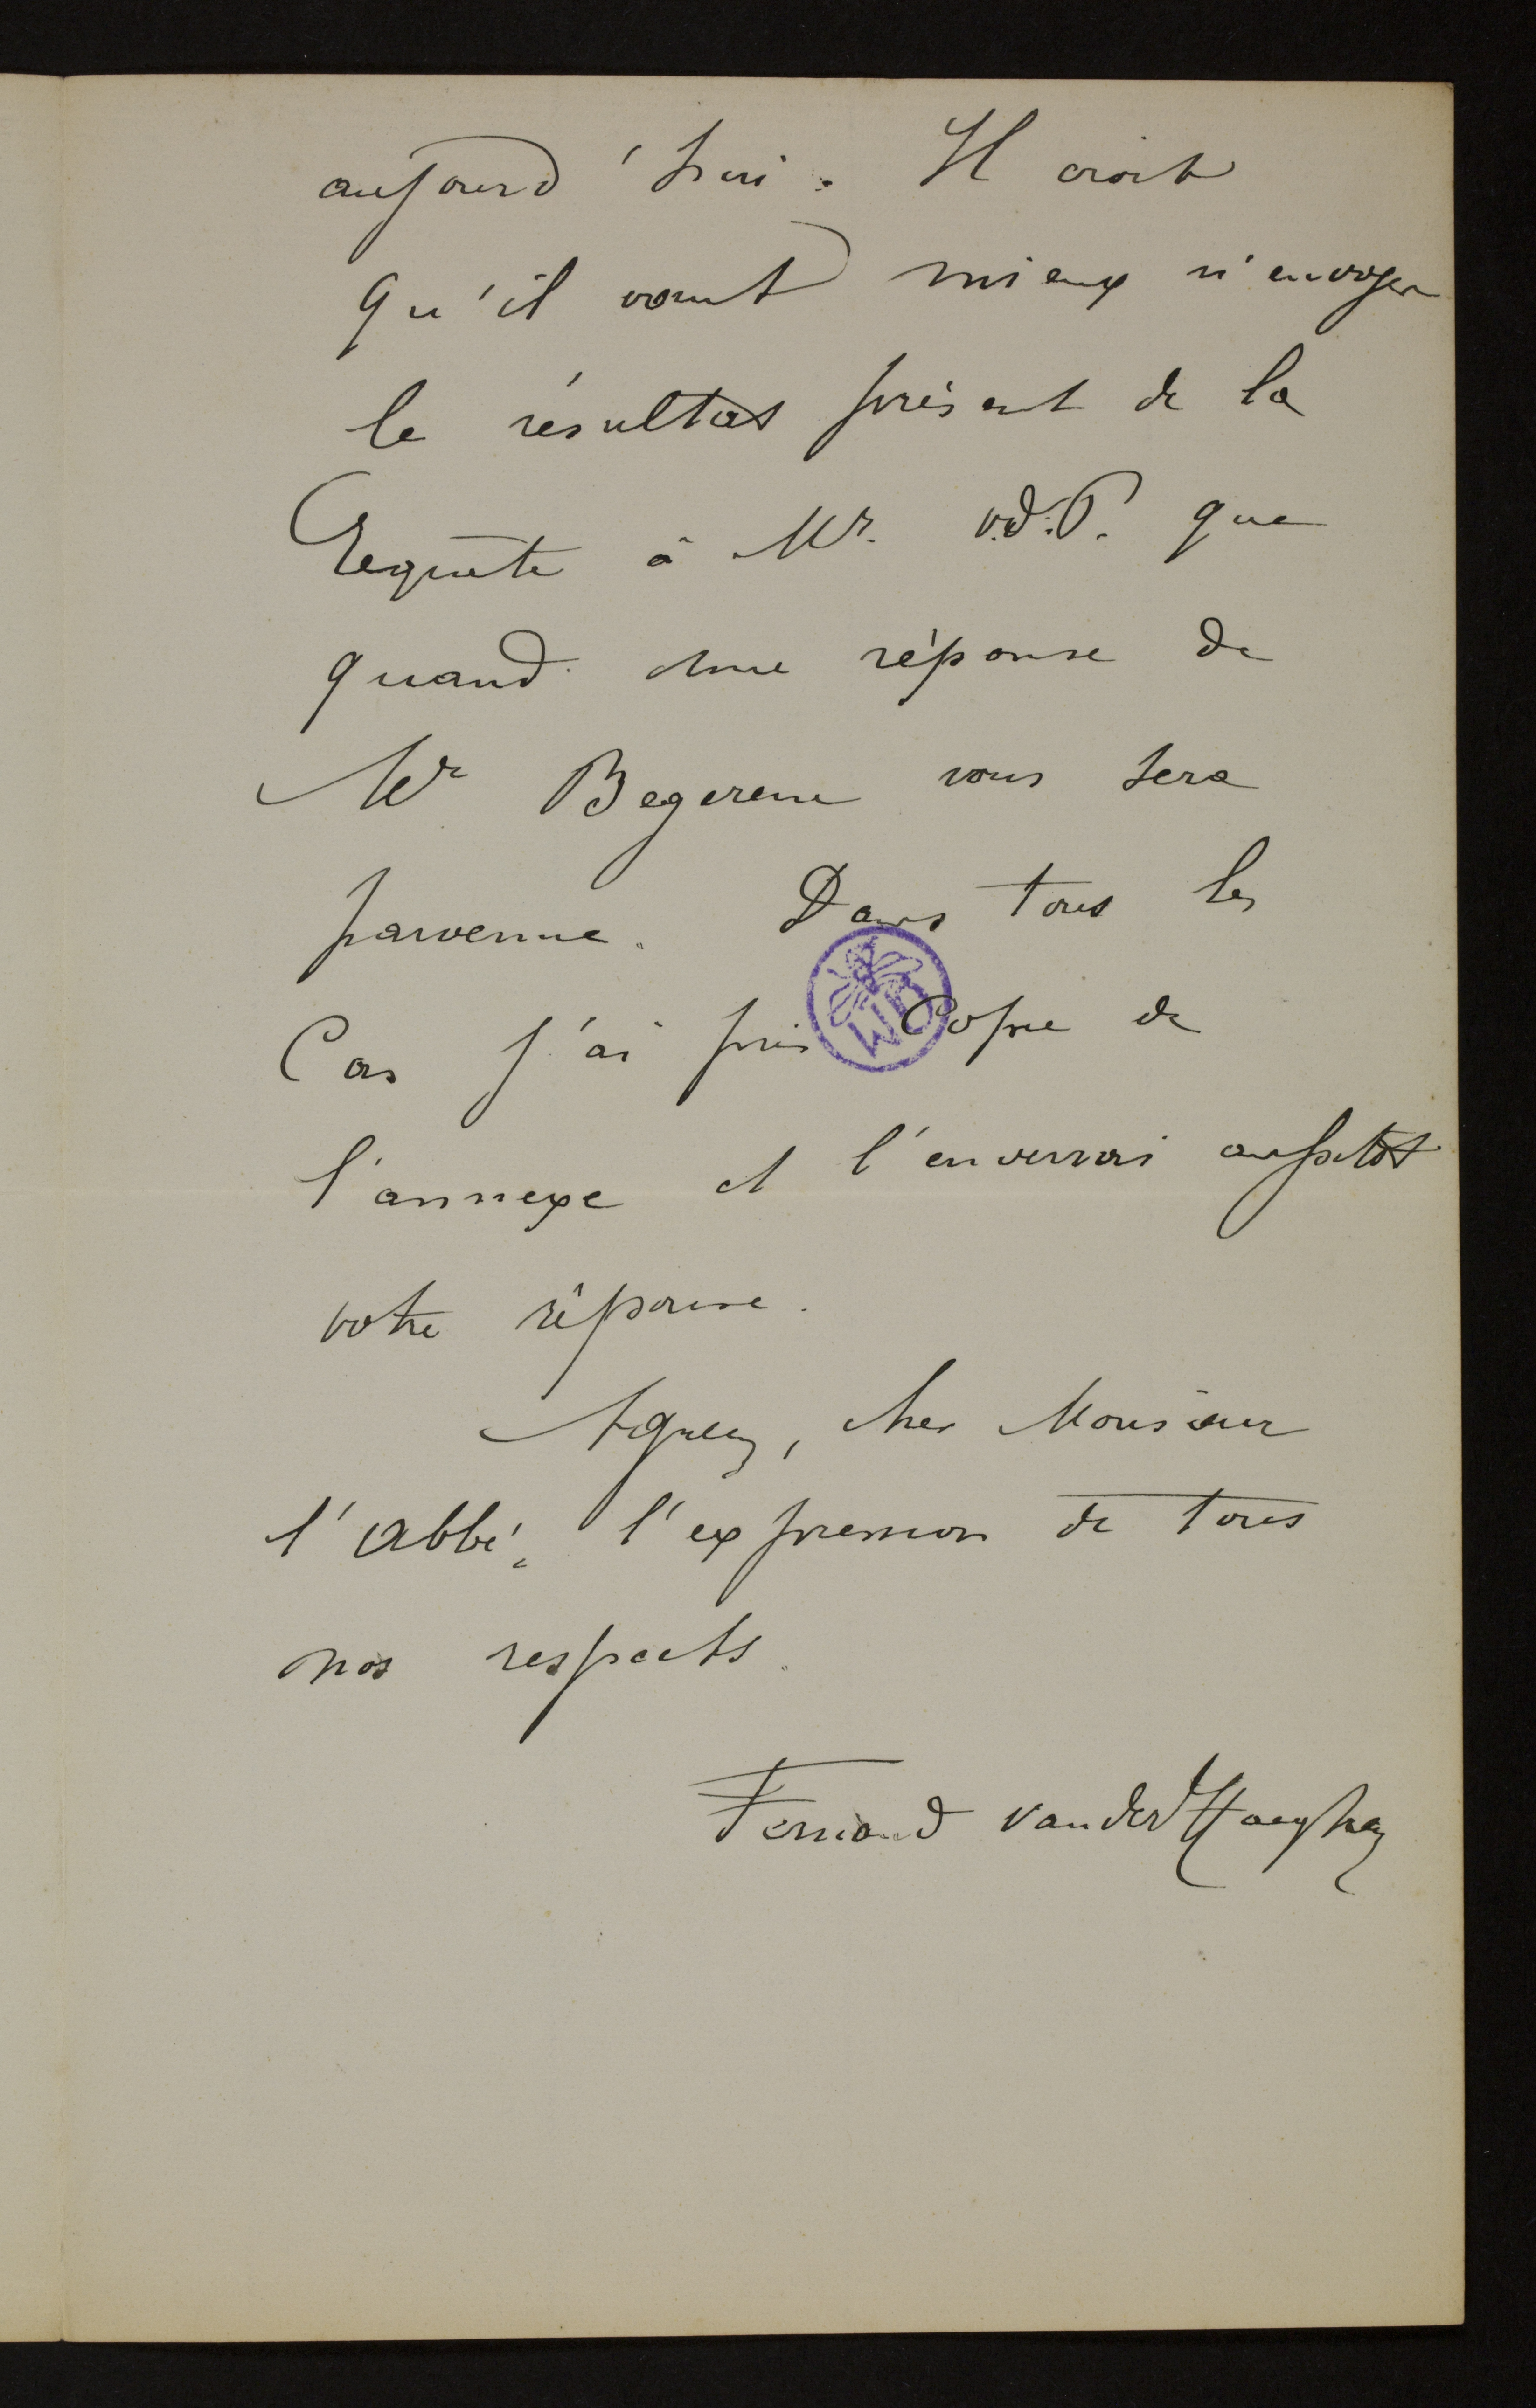 aujourd'hui. Il croit
qu'il vaut mieux n'envoyer
le résultat présent de la
Requête à Mr. v.d.P. que
quand une réponse de
Mr Begerem vous sera
parvenue. Dans tous les
Cas j'ai pris Copie de
l'annexe et l'enverrai aussitôt
votre réponse.
Agréez, cher Monsieur
l'Abbé, l'expression de tous
nos respects.
Fernand vander Haeghen